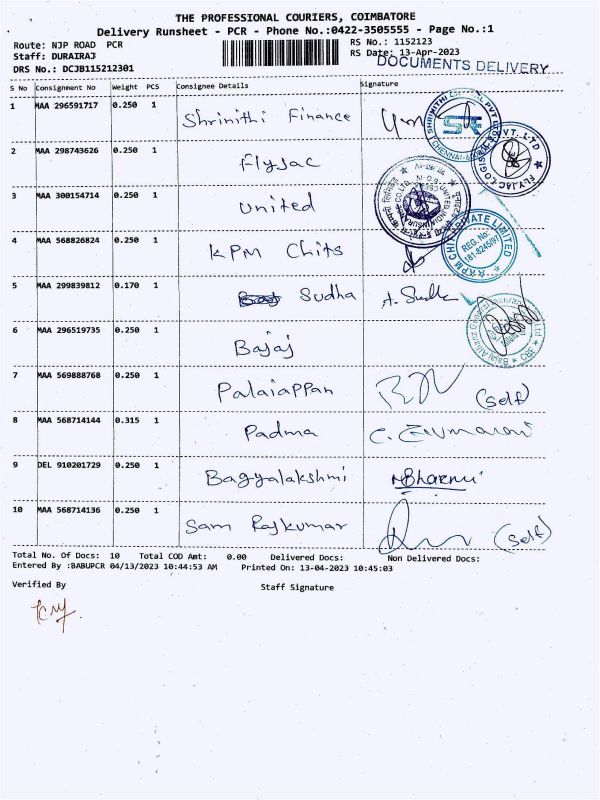 THE PROFESSIONAL COURIERS, COIMBATORE
Delivery Runsheet - PCR - Phone No.:0422-3505555 - Page No.:1
Route: NJP ROAD PCR
RS No.: 1152123
Staff: DURAIRAJ
RS Date: 13-Apr-2023
DOCUMENTS DELIVERY
DRS No.: DCJB115212301
S No Consignment No Weight PCS Consignee Details Signature
1 MAA 296591717 0.250 1 Shrinithi Finance
2 MAA 298743626 0.250 1 Flyjac
3 MAA 300154714 0.250 1 United
4 MAA 568826824 0.250 1 KPM Chits
5 MAA 299839812 0.170 1 Sudha
6 MAA 296519735 0.250 1 Bajaj
7 MAA 569888768 0.250 1 Palaiappan (self)
8 MAA 568714144 0.315 1 Padma
9 DEL 910201729 0.250 1 Bagyalakshmi
10 MAA 568714136 0.250 1 Sam Rajkumar (self)
Total No. Of Docs: 10 Total COD Amt: 0.00 Delivered Docs: Non Delivered Docs:
Entered By :BABUPCR 04/13/2023 10:44:53 AM Printed On: 13-04-2023 10:45:03
Verified By Staff Signature